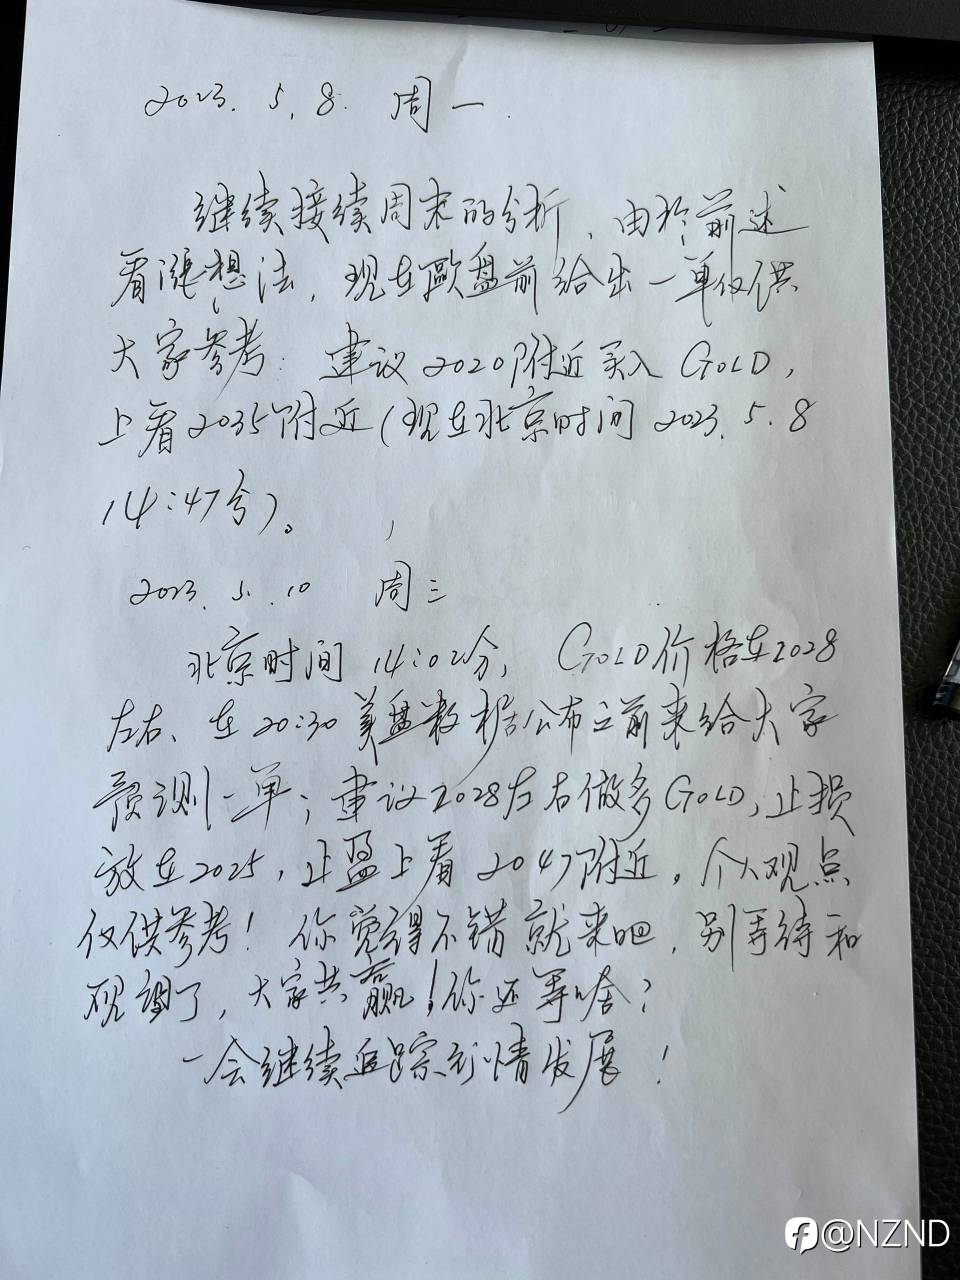 2023.5.8. 周一.
继续接续周末的分析、由於前述
看漲想法,现在歐盘前给出一单仅供
大家参考:建议2020附近买入GOLD,
上看2035附近(现在北京时间2023.5.8
14:47分)。
2023.5.10 周三
北京时间14:02分,GOLD价格在2028
左右、在20:30美盘数据公布之前来给大家
预测一单;建议2028左右做多GOLD,止损
放在2025,止盈上看2047附近。个人观点
仅供参考!你觉得不错就来吧,别等待和
观望了,大家共赢!你还等啥?
一会继续追踪行情发展!
@NZND